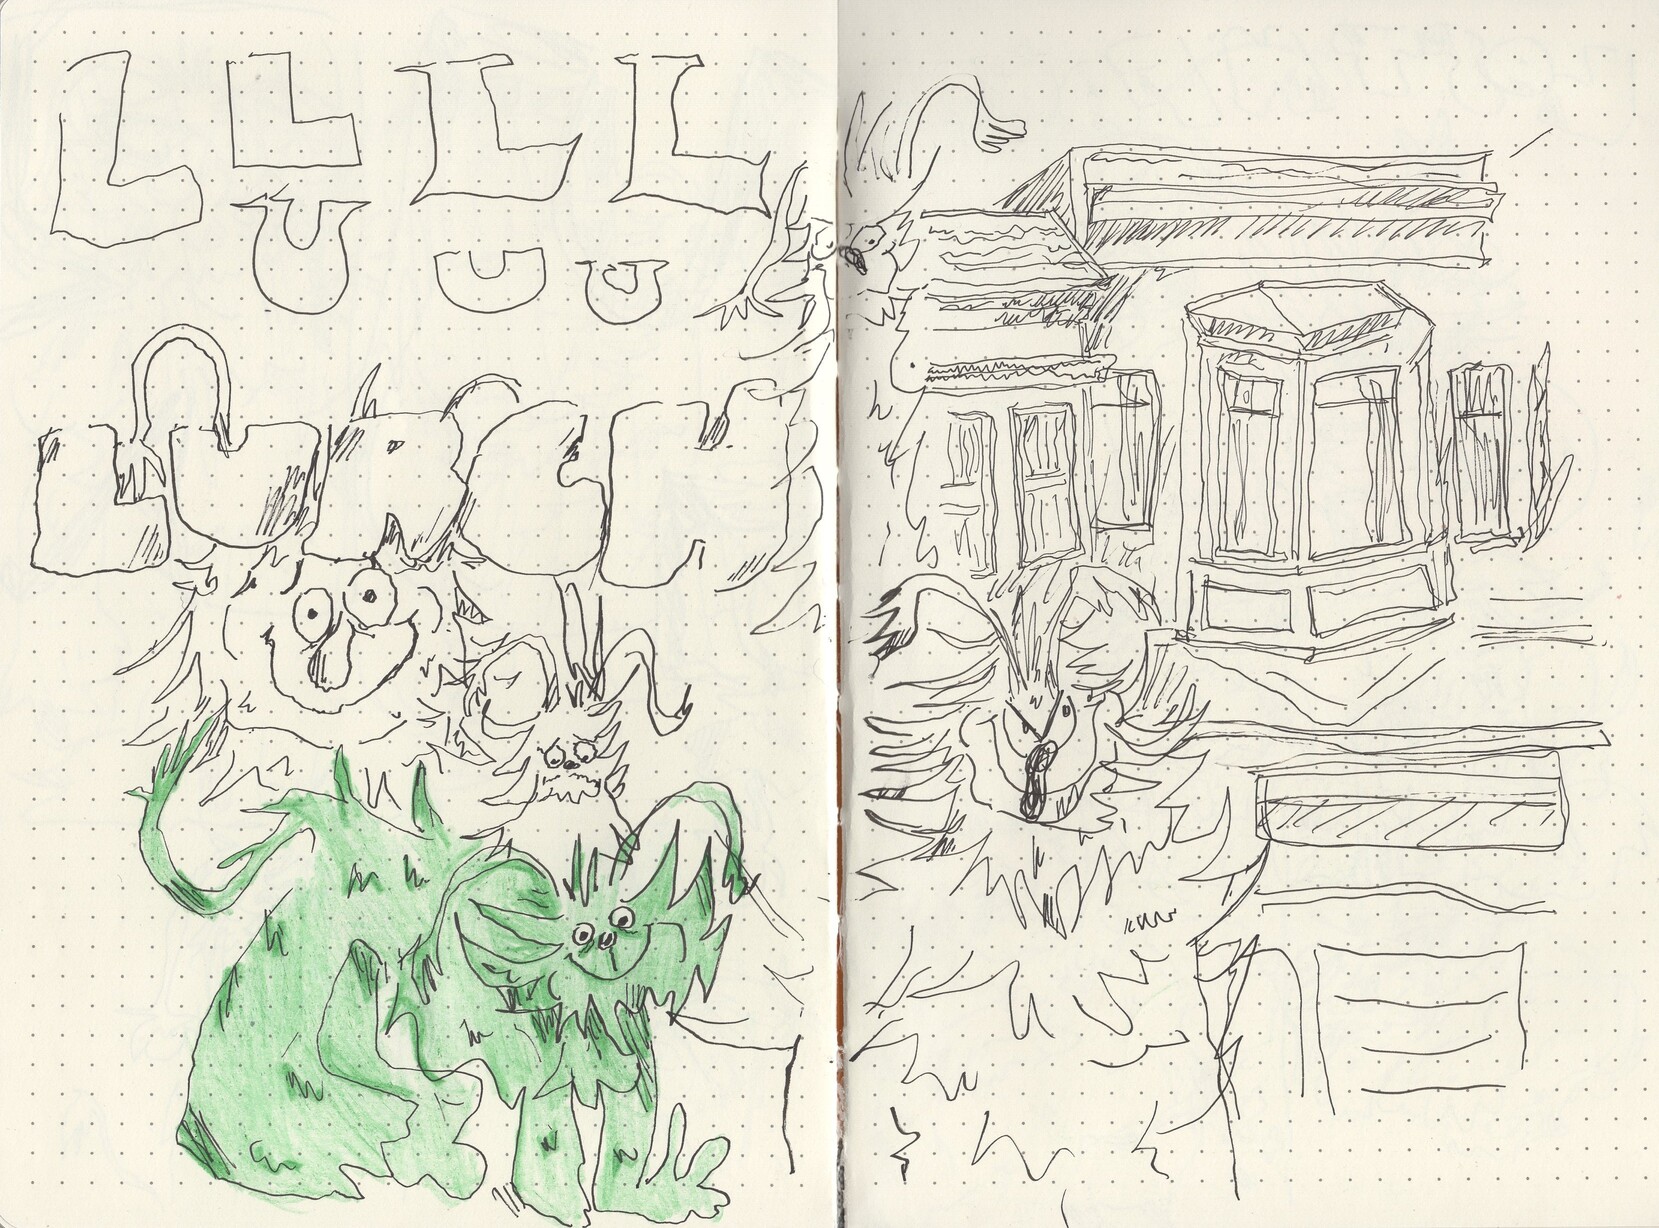 L L L L
U U U
LURCH